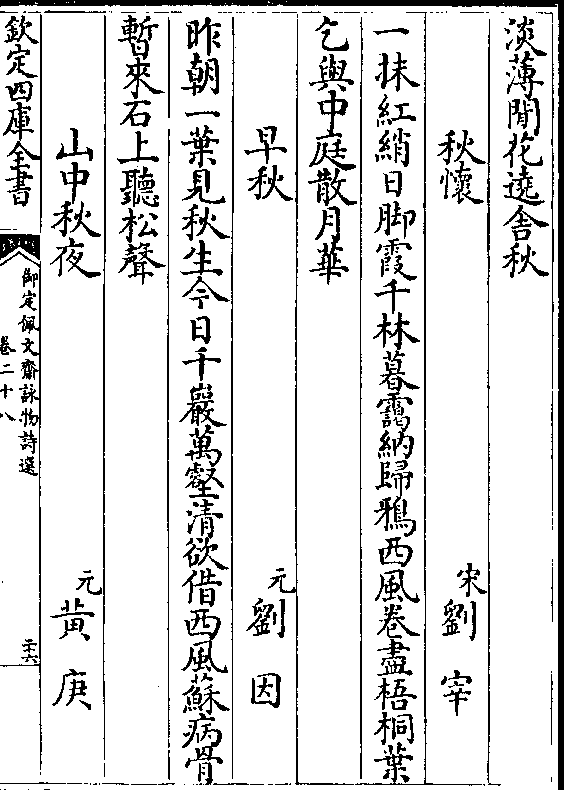 淡薄閒花遶舍秋
秋懷 宋劉宰
一抹紅綃日脚霞千林暮靄納歸鴉西風卷盡梧桐葉
乞與中庭散月華
早秋 元劉因
昨朝一葉見秋生今日千巖萬壑清欲借西風蘇病骨
暫來石上聽松聲
山中秋夜 元黃庚
欽定四庫全書
御定佩文齋詠物詩選
卷二十八
二十六